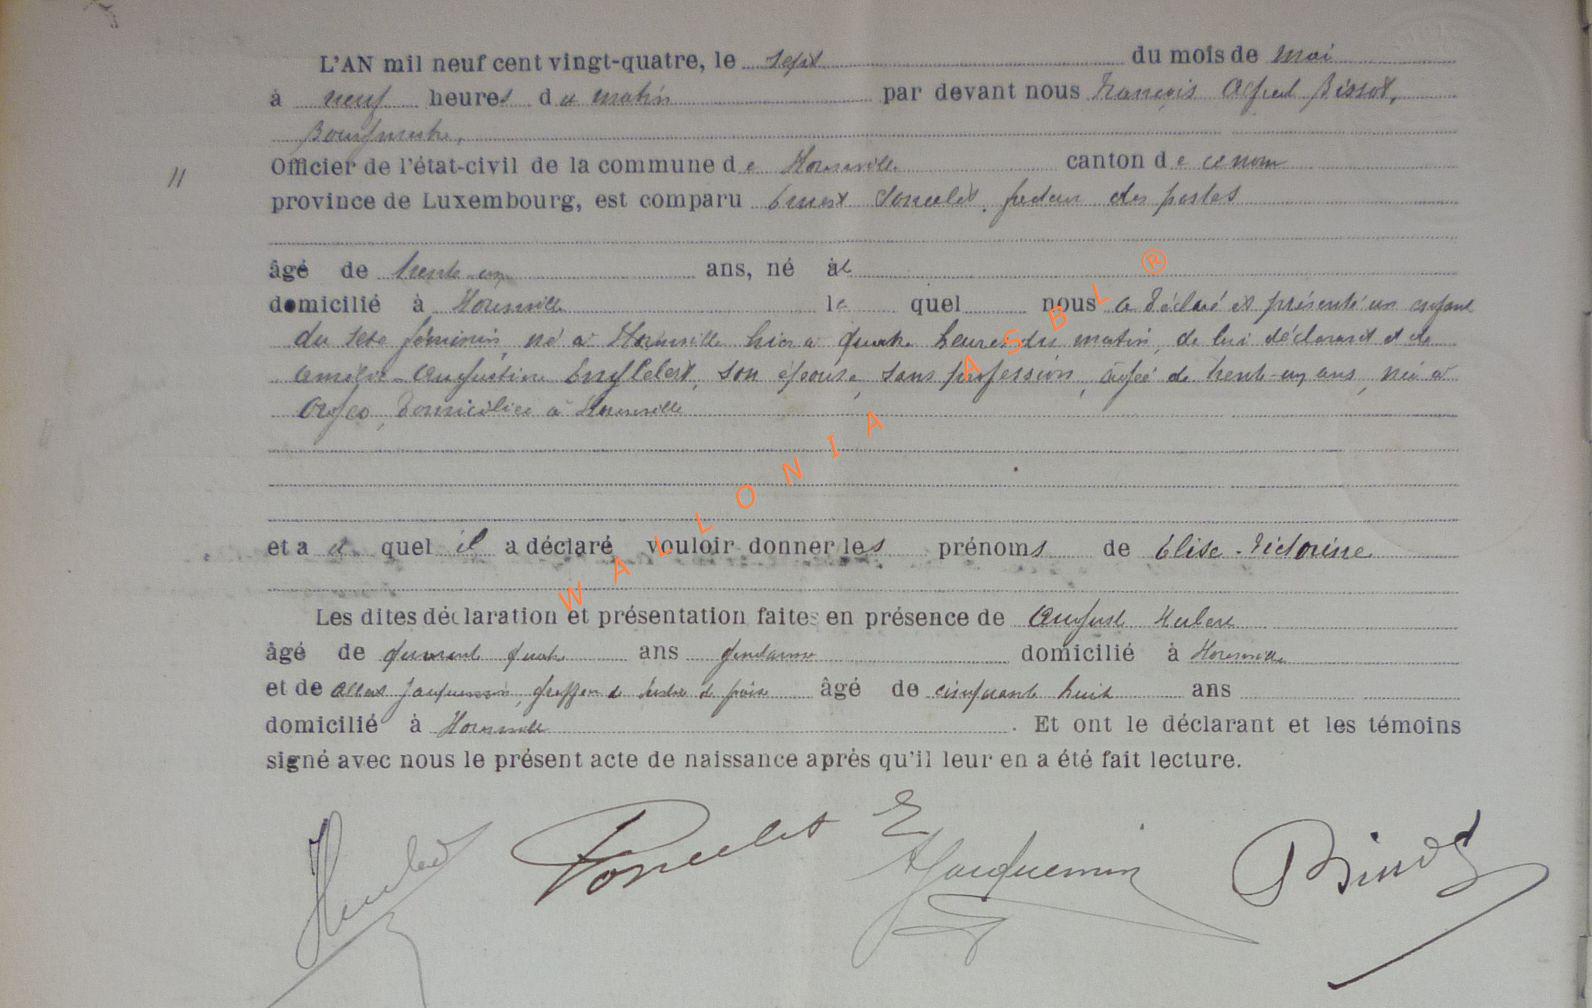 L'AN mil neuf cent vingt-quatre, le sept du mois de mai
à neuf heures du matin par devant nous François Alfred Bissot,
Bourgmestre,
11
Officier de l'état-civil de la commune de Houmville canton de ce nom
province de Luxembourg, est comparu Ernest Poncelet, facteur des postes
âgé de trente-un ans, né à
domicilié à le quel nous a déclaré et présenté un enfant
du sexe féminin, né à hier à quatre heures du matin, de lui déclarant et de
Amélie-Augustine Englebert, son épouse, sans profession, âgée de trente-un ans, née à
domiciliée à
et a quel il a déclaré vouloir donner les prénoms de Elise-Victorine
Les dites déclaration et présentation faites en présence de Auguste Hubert
âgé de quarante quatre ans gendarme domicilié à
et de Jacquemin, greffier de justice de paix âgé de cinquante huit ans
domicilié à . Et ont le déclarant et les témoins
signé avec nous le présent acte de naissance après qu'il leur en a été fait lecture.
Poncelet E
AJacquemin
WALLONIA ASBL ®